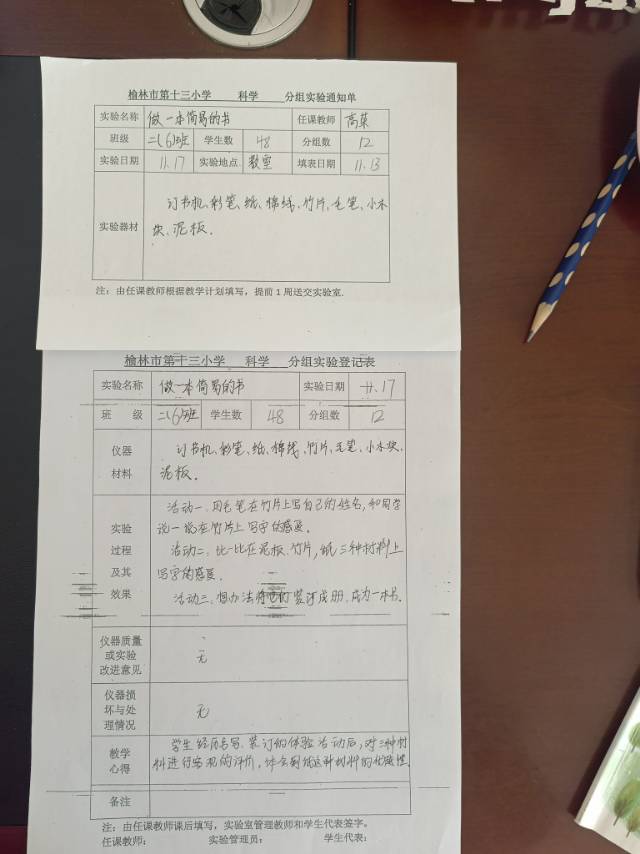 榆林市第十三小学 科学 分组实验通知单
实验名称 做一本简易的书 任课教师 高菜
班级 二(6)班 学生数 48 分组数 12
实验日期 11.17 实验地点 教室 填表日期 11.13
实验器材 订书机、彩笔、纸、棉线、竹片、毛笔、小木
块、泥板.
注：由任课教师根据教学计划填写，提前1周送交实验室.
榆林市第十三小学 科学 分组实验登记表
实验名称 做一本简易的书 实验日期 11.17
班 级 二(6)班 学生数 48 分组数 12
仪器 订书机、彩笔、纸、棉线、竹片、毛笔、小木块、
材料 泥板.
活动一、用毛笔在竹片上写自己的姓名,和同学
实验 说一说在竹片上写字的感受.
过程 活动二、比一比在泥板、竹片,纸三种材料上
及其 写字的感受.
效果 活动三、想办法将它们装订成册,成为一本书.
仪器质量
或实验 无
改进意见
仪器损
坏与处 无
理情况
教学 学生经历书写、装订的体验活动后,对三种材
心得 料进行客观的评价,体会到纸这种材料的优越性.
备注
注：由任课教师课后填写，实验室管理教师和学生代表签字。
任课教师： 实验管理员： 学生代表：